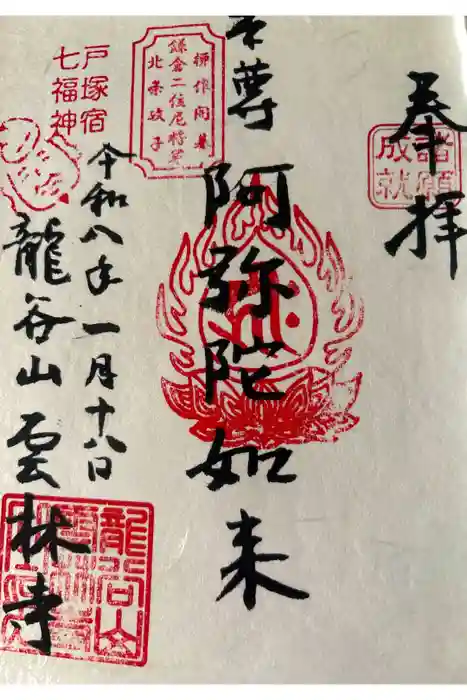 奉拝
諸願
成就
本尊
阿弥陀如来
御作開基
鎌倉二位尼将軍
北条政子
戸塚宿
七福神
令和八年一月十八日
龍谷山雲林寺
龍谷山